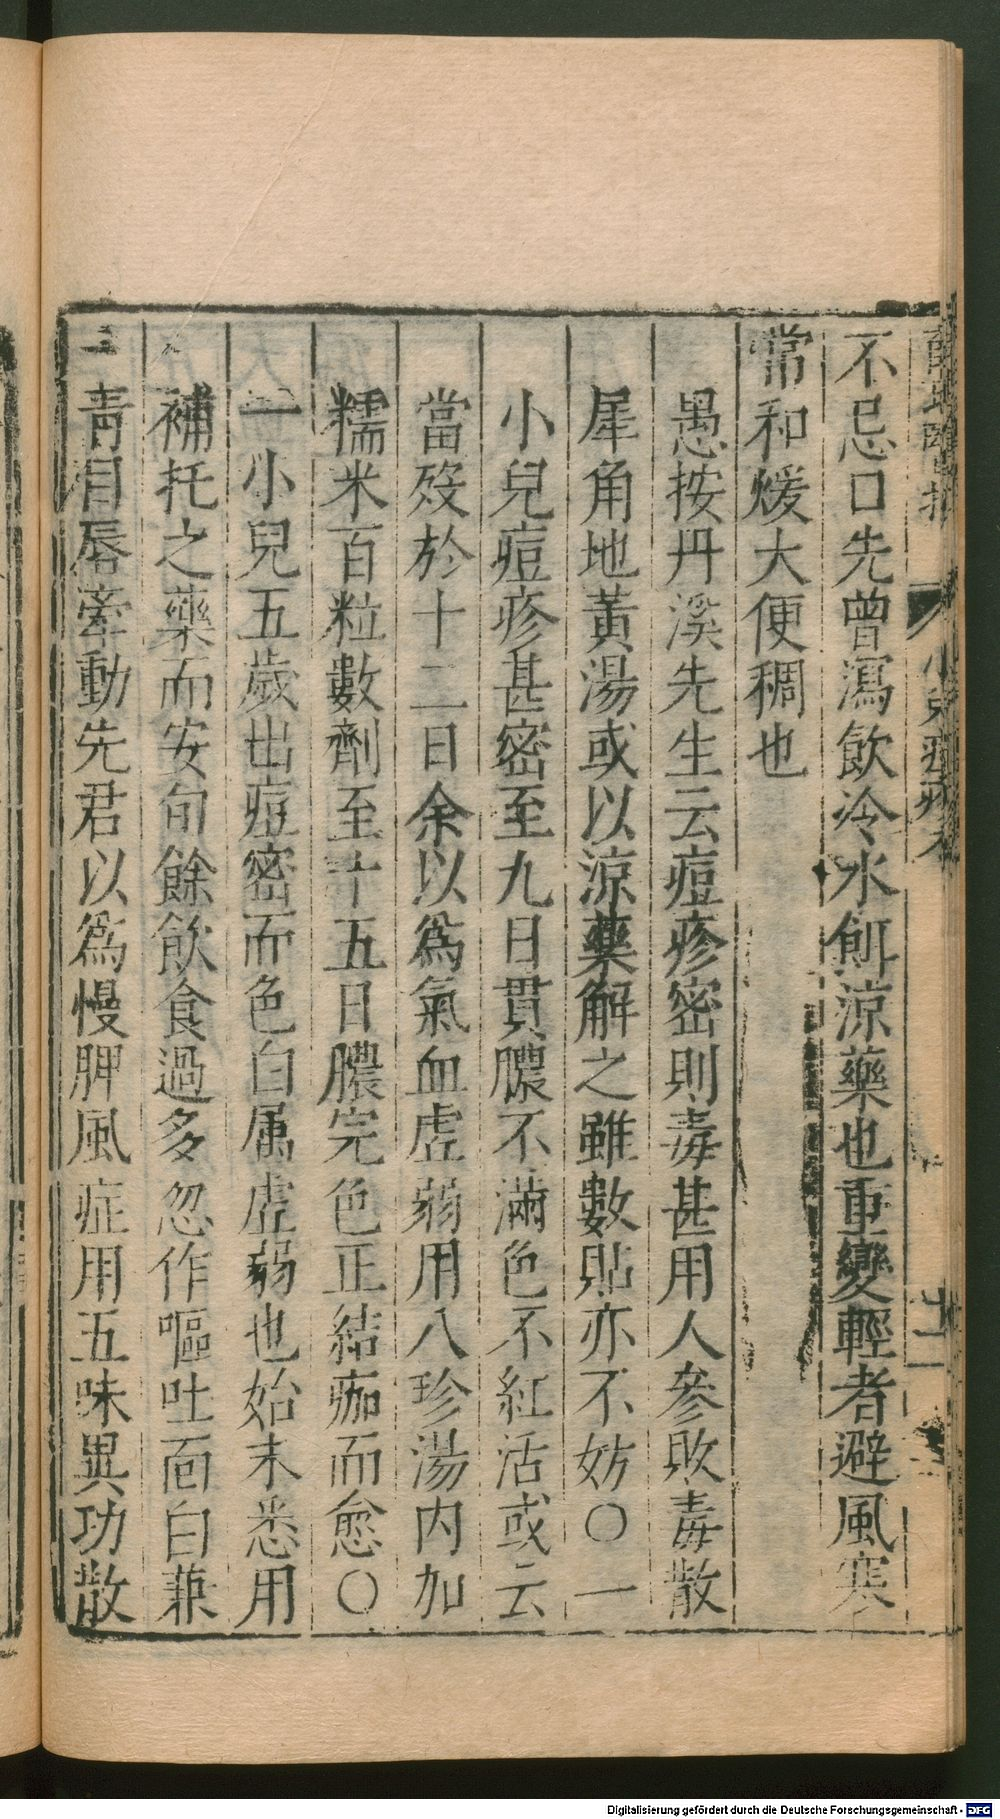 不忌口先曾瀉飲冷水飼涼藥也重變輕者避風寒
常和煖大便稠也
愚按丹溪先生云痘疹密則毒甚用人參敗毒散
犀角地黃湯或以涼藥解之雖數貼亦不妨○一
小兒痘疹甚密至九日貫膿不滿色不紅活或云
當歿於十二日余以爲氣血虛弱用八珍湯內加
糯米百粒數劑至十五日膿完色正結痂而愈○
一小兒五歲出痘密而色白属虛弱也始末悉用
補托之藥而安旬餘飲食過多忽作嘔吐面白兼
青目唇牽動先君以爲慢脾風症用五味異功散
小兒痘疹
十二
Digitalisierung gefördert durch die Deutsche Forschungsgemeinschaft - DFG